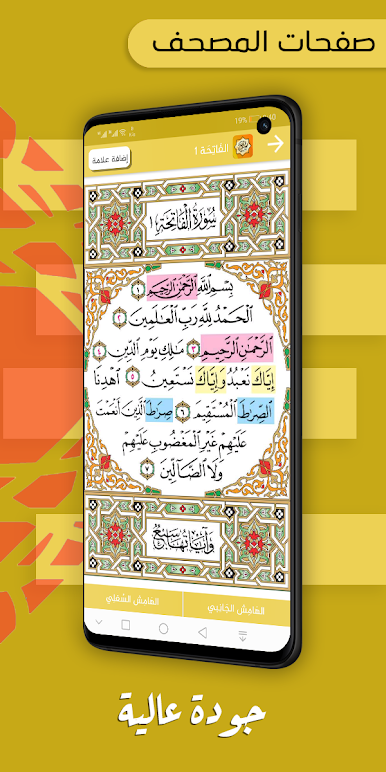 صفحات المصحف
19%
إضافة علامة
الفَاتِحَة ١
سُورَةُ ٱلْفَاتِحَةِ ١
بِسْمِ ٱللَّهِ ٱلرَّحْمَٰنِ ٱلرَّحِيمِ ١
ٱلْحَمْدُ لِلَّهِ رَبِّ ٱلْعَٰلَمِينَ ٢
ٱلرَّحْمَٰنِ ٱلرَّحِيمِ ٣ مَٰلِكِ يَوْمِ ٱلدِّينِ ٤
إِيَّاكَ نَعْبُدُ وَإِيَّاكَ نَسْتَعِينُ ٥ ٱهْدِنَا
ٱلصِّرَٰطَ ٱلْمُسْتَقِيمَ ٦ صِرَٰطَ ٱلَّذِينَ أَنْعَمْتَ
عَلَيْهِمْ غَيْرِ ٱلْمَغْضُوبِ عَلَيْهِمْ
وَلَا ٱلضَّآلِّينَ ٧
وَآيَاتُهَا سَبْعٌ
الهَامِش الجَانِبي
الهَامِش السُّفلي
جودة عالية